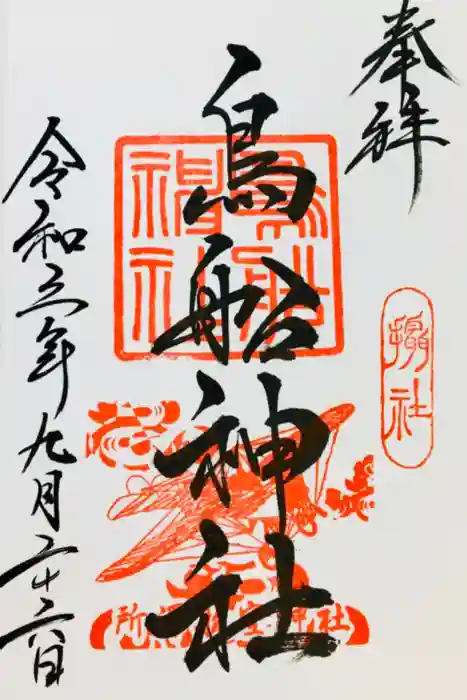 奉拝
摂社
鳥船神社
鳥船神社
所澤神明社
令和三年九月二十六日